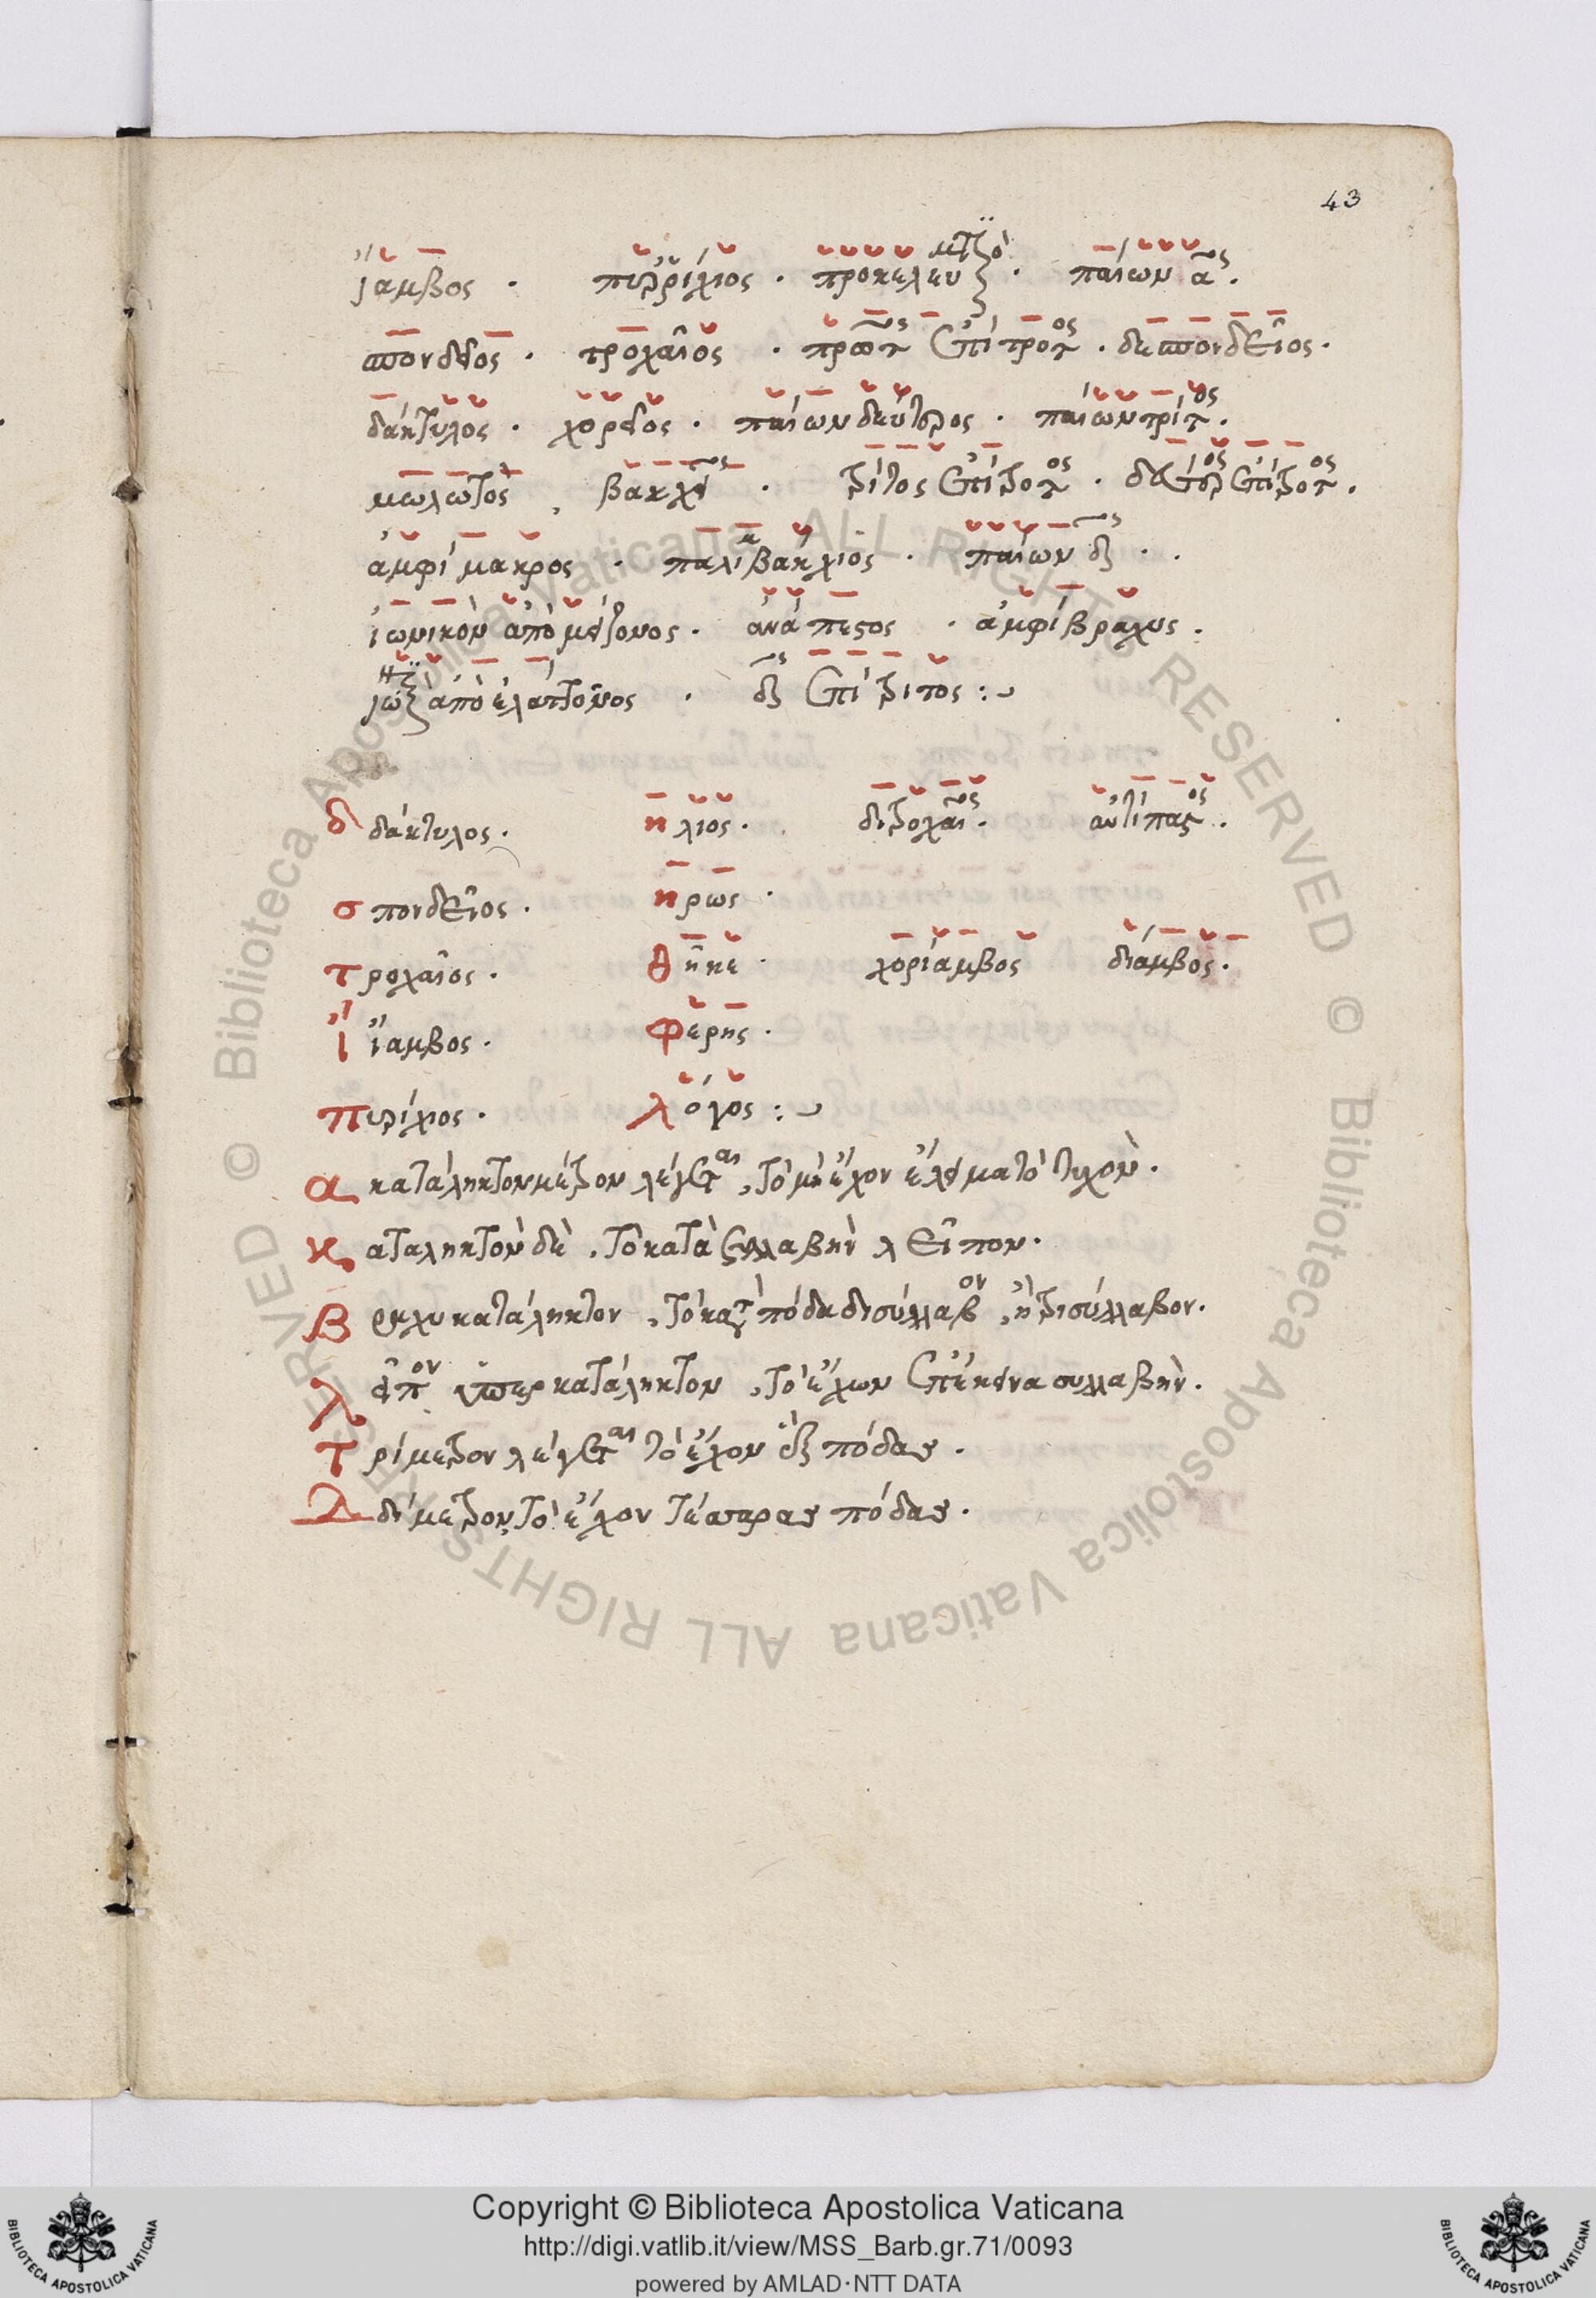 43
ἴαμβος · πυρρίχιος · προκελευσματικὸ · παίων α^ος ·
σπονδεῖος · τροχαῖος · πρῶτος ἐπίτροτος · δισπονδεῖος ·
δάκτυλος · χορεῖος · παίων δεύτερος · παίων τρίτος ·
μωλωτὸς , βακχεῖος · τρίτος ἐπίτροτος · δεύτερος ἐπίτροτος ·
ἀμφίμακρος · παλιμβάκχιος · παίων δ^ος · ·
ἰωνικὸν ἀπὸ μείζονος · ἀνάπεστος · ἀμφίβραχυς ·
ἰω ἀπὸ ἐλάττονος · δ^ος ἐπίτριτος :~
δ δάκτυλος · ἥλιος · διτροχαῖος · ἀντίπαστος ·
σπονδεῖος · ἥρως ·
τροχαῖος · θῆκε · χορίαμβος διάμβος ·
ἴ ἴαμβος · φερης ·
πυρίχιος · λόγος :~
ἀκατάληκτον μέτρον λέγεται , τὸ μὴ ἔχον ἔλειμα τὸ τυχὸν ·
καταληκτὸν δὲ , τὸ κατὰ συλλαβὴν λεῖπον ·
βραχυκατάληκτον , τὸ κατὰ πόδα δισύλλαβον , ἢ τρισύλλαβον ·
λεῖπον ὑπερκατάληκτον , τὸ ἔχων ἐπέκεινα συλλαβὴν ·
τρίμετρον λέγεται τὸ ἔχον ἓξ πόδας ·
Δ δίμετρον , τὸ ἔχον τέσσαρας πόδας ·
Copyright © Biblioteca Apostolica Vaticana
http://digi.vatlib.it/view/MSS_Barb.gr.71/0093
powered by AMLAD·NTT DATA
BIBLIOTECA APOSTOLICA VATICANA
BIBLIOTECA APOSTOLICA VATICANA
© Biblioteca Apostolica Vaticana ALL RIGHTS RESERVED © Biblioteca Apostolica Vaticana ALL RIGHTS RESERVED